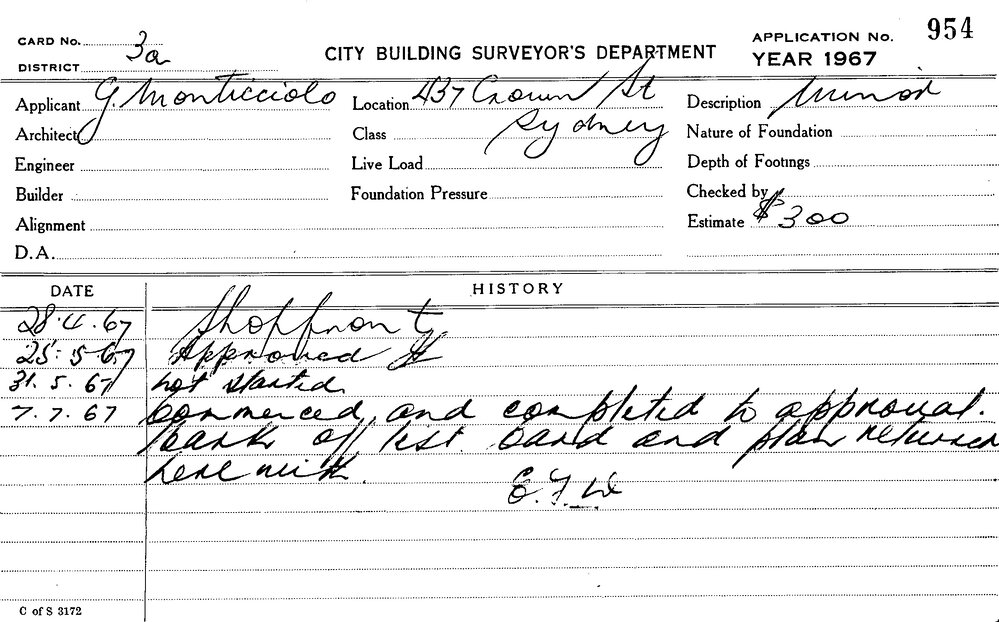 CARD No. 3a
CITY BUILDING SURVEYOR'S DEPARTMENT
APPLICATION No. 954
DISTRICT
YEAR 1967
Applicant G. Monticciolo Location 437 Crown St Description Minor
Architect Class Sydney Nature of Foundation
Engineer Live Load Depth of Footings
Builder Foundation Pressure Checked by
Alignment Estimate $300
D.A.
DATE HISTORY
28.4.67 Shopfront
25.5.67 Approved
31.5.67 not started
7.7.67 Commenced, and completed to approval.
mark off list card and plan returned
herewith.
E.F.W
C of S 3172